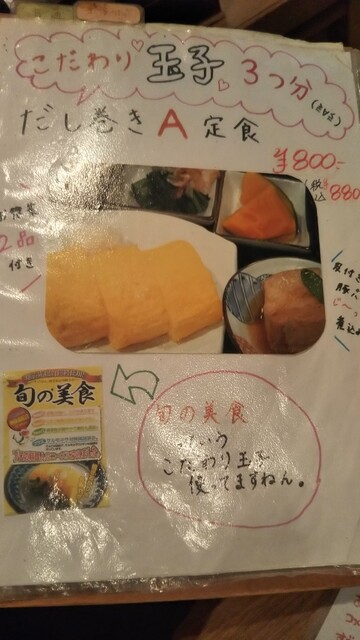 こだわり玉子3つ分(まるっと)
だし巻きA定食
¥800-
税込¥880
お惣菜
2品
付き
骨付き
豚
じ〜っ
煮込
旬の美食
旬の美食
という
こだわり玉子
使ってますねん。